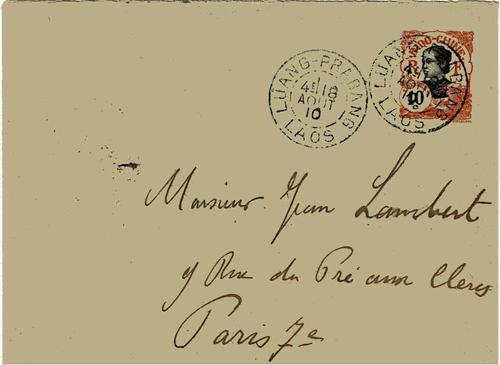 INDO-CHINE
R F
10
LUANG-PRABANG
4E 18
AOUT
10
LAOS
LUANG-PRABANG
AOUT
LAOS
Monsieur Jean Lambert
9 Rue du Pré aux Clercs
Paris 7e